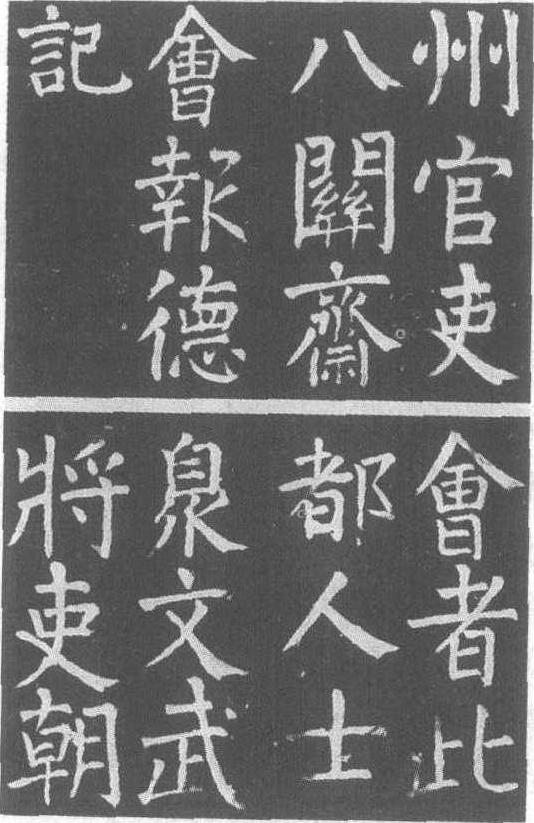 州官吏
八關齋
會報德
記
會者此
都人士
臮文武
將吏朝